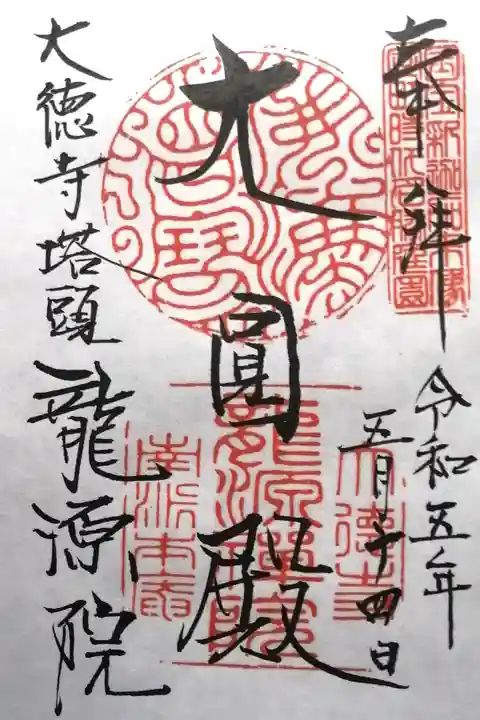 奉拝
令和五年
五月十四日
大圓殿
大徳寺塔頭龍源院